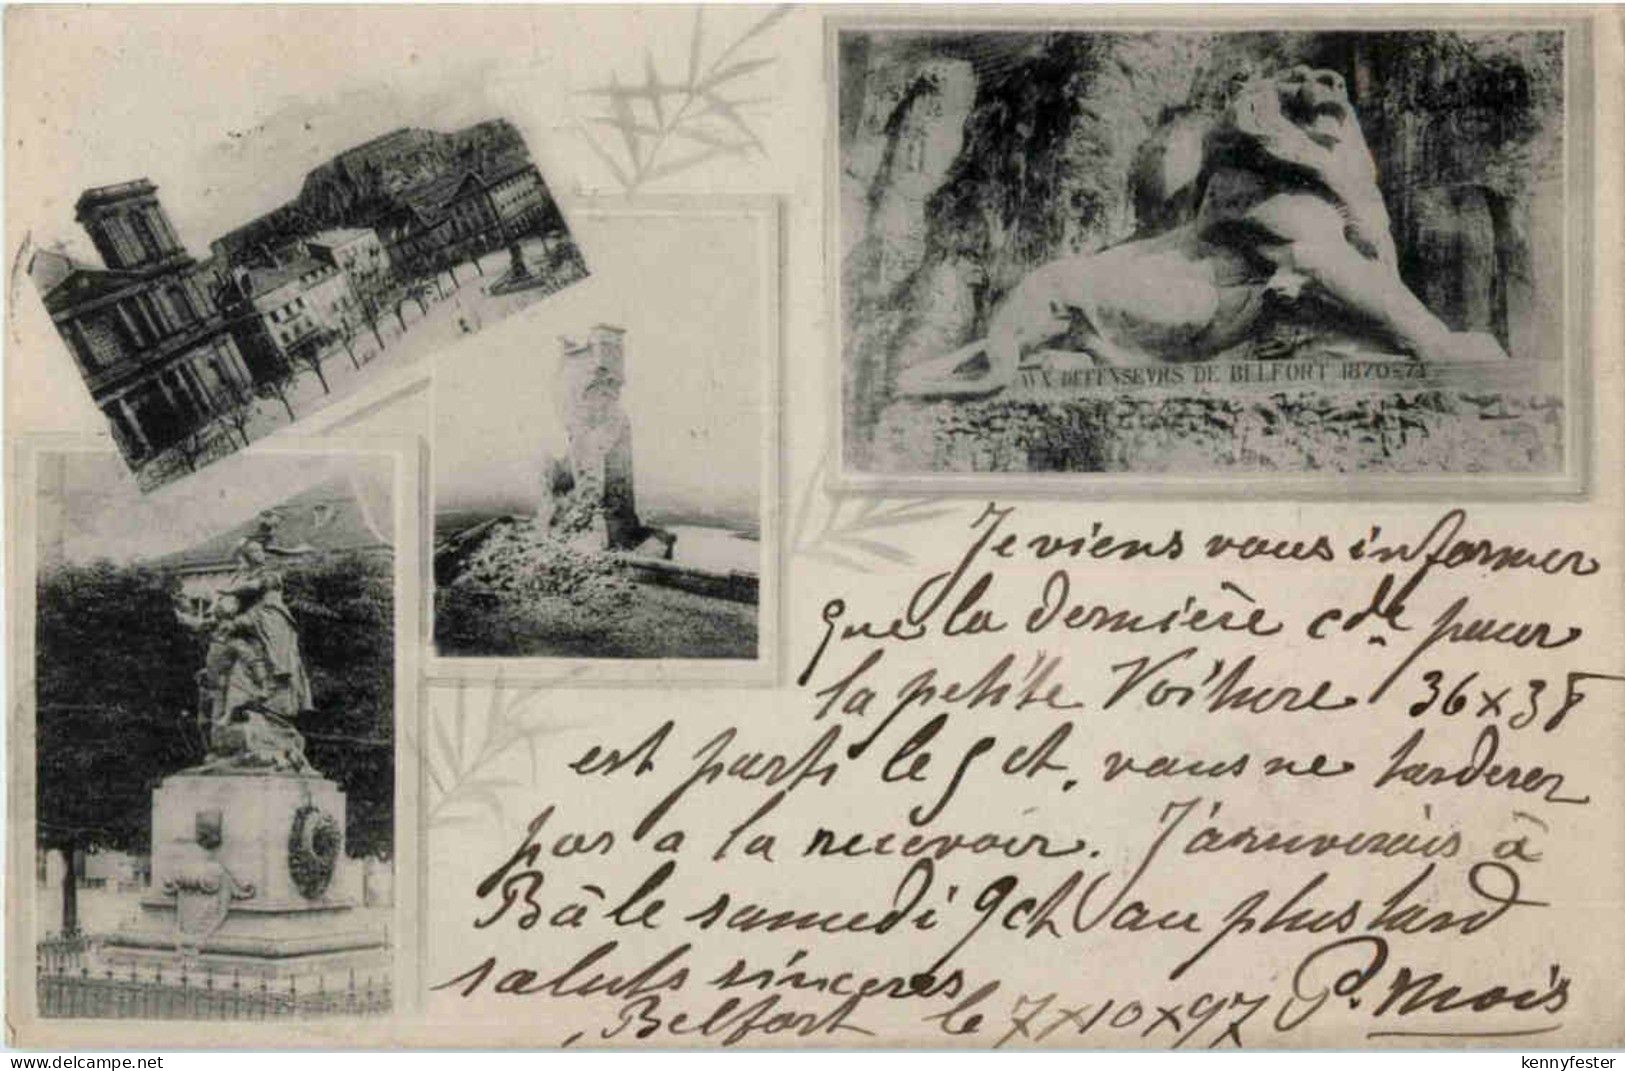 AUX DEFENSEVRS DE BELFORT 1870-71
Je viens vous informer
que la dernière cde pour
la petite Voiture 36 x 38
est parti le 5 ct, vous ne tarderez
pas a la recevoir. J'arriverais à
Bâle samedi 9 ct au plus tard
saluts sincères
Belfort le 7 x 10 x 97 P. Mois
kennyfester